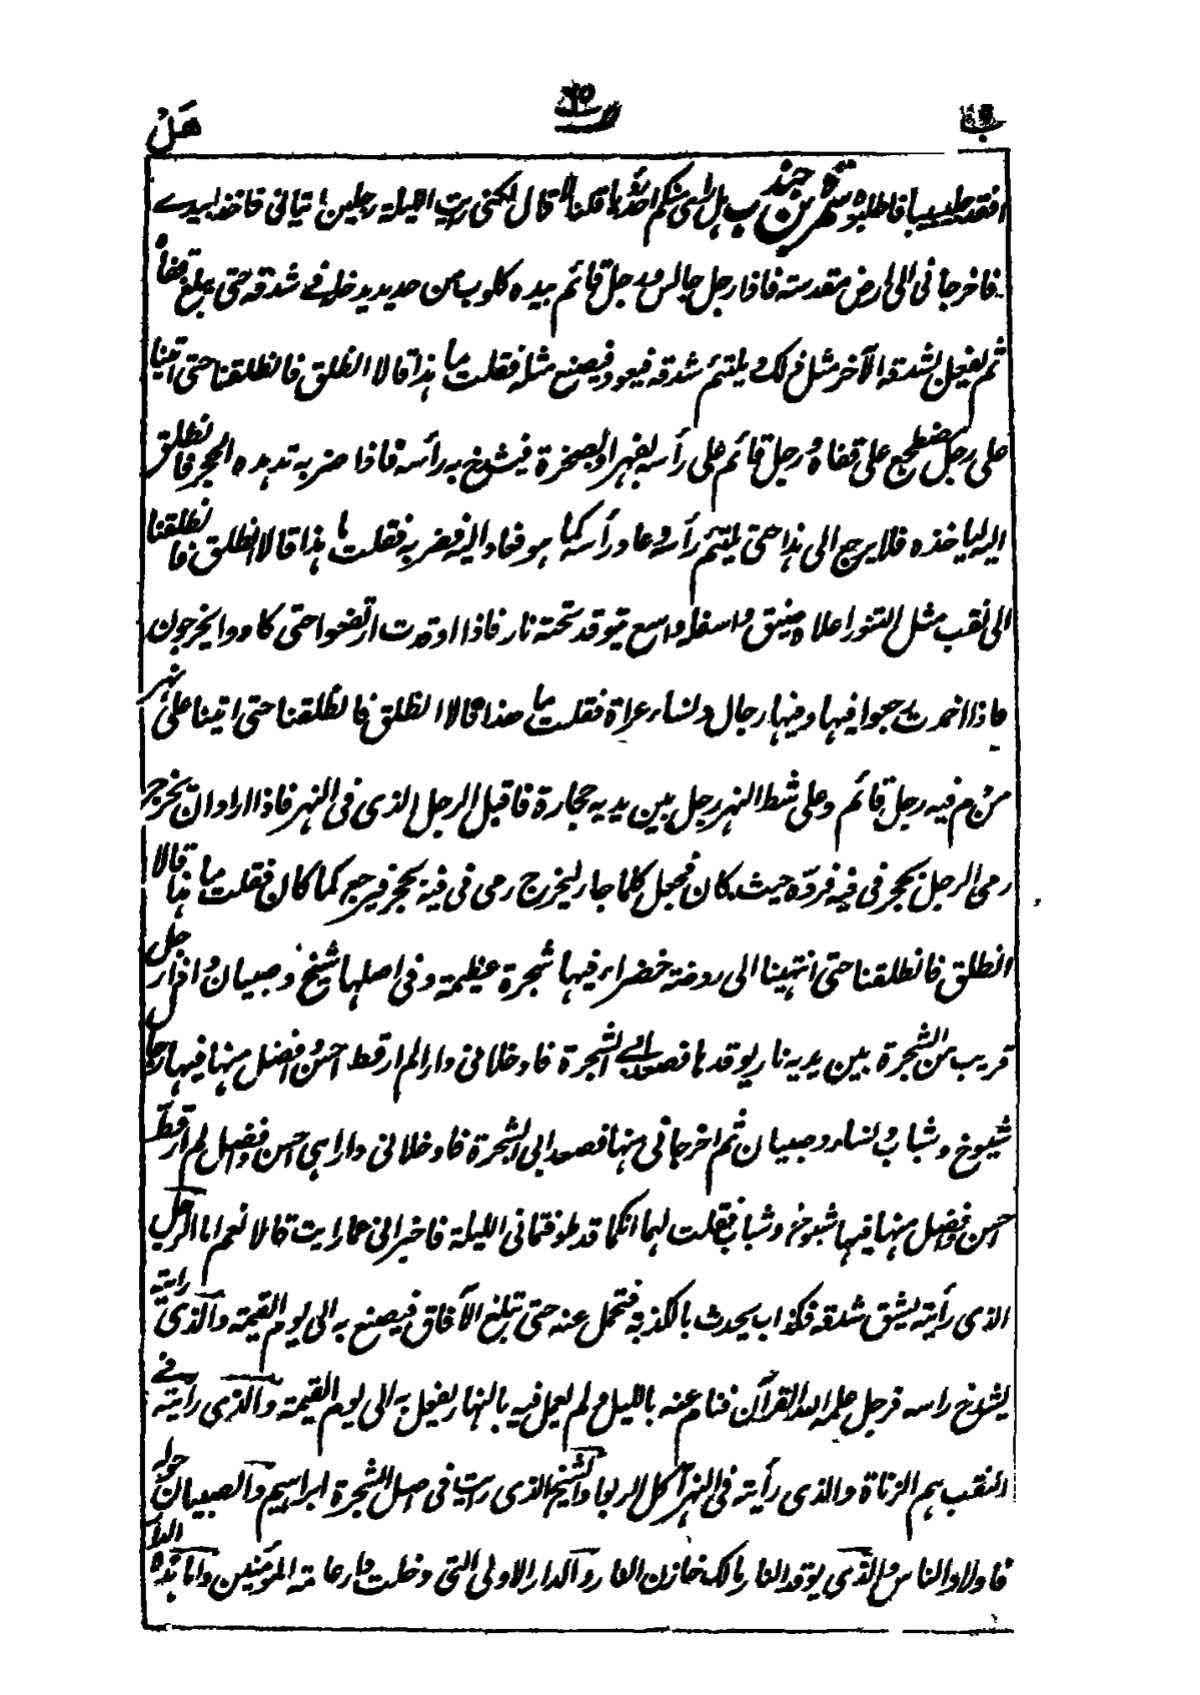 هَلْ
افقد جليبيبا فاطلبوه سمرة بن جندب هل راى منكم احد رؤيا قلنا لا قال لكنى رايت الليلة رجلين اتيانى فاخذا بيدے
فاخرجانى الى ارض مقدسة فاذا رجل جالس ورجل قائم بيده كلوب من حديد يدخله فے شدقه حتى يبلغ قفاه
ثم يفعل بشدقه الآخر مثل ذلك ويلتئم شدقه فيعود فيصنع مثله فقلت ما هذا قالا انطلق فانطلقنا حتى اتينا
على رجل مضطجع على قفاه ورجل قائم على رأسه بفهر او بصخرة فيشدخ به رأسه فاذا ضربه تدهده الحجر فانطلق
اليه لياخذه فلا يرجع الى هذا حتى يلتئم رأسه وعاد رأسه كما هو فعاد اليه فضربه فقلت ما هذا قالا انطلق فانطلقنا
الى نقب مثل التنور اعلاه ضيق واسفله واسع يتوقد تحته نار فاذا اوقدت ارتفعوا حتى كادوا يخرجون
فاذا اخمدت رجعوا فيها وفيها رجال ونساء عراة فقلت ما هذا قالا انطلق فانطلقنا حتى اتينا على نهر
من دم فيه رجل قائم وعلى شط النهر رجل بين يديه حجارة فاقبل الرجل الذى فى النهر فاذا اراد ان يخرج
رمى الرجل بحجر فى فيه فرده حيث كان فجعل كلما جاء ليخرج رمى فى فيه بحجر فيرجع كما كان فقلت ما هذا قالا
انطلق فانطلقنا حتى انتهينا الى روضة خضراء فيها شجرة عظيمة وفى اصلها شيخ وصبيان واذا رجل
قريب من الشجرة بين يديه نار يوقدها فصعدا بى الشجرة فادخلانى دارا لم ار قط احسن وافضل منها فيها رجال
شيوخ وشباب ونساء وصبيان ثم اخرجانى منها فصعدا بى الشجرة فادخلانى دارا هى احسن وافضل لم ار قط
احسن وافضل منها فيها شيوخ وشباب فقلت لهما انكما قد طوفتمانى الليلة فاخبرانى عما رايت قالا نعم اما الرجل
الذى رأيته يشق شدقه فكذاب يحدث بالكذبة فتحمل عنه حتى تبلغ الآفاق فيصنع به الى يوم القيمة والذى رايته
يشدخ راسه فرجل علمه الله القرآن فنام عنه بالليل ولم يعمل فيه بالنهار يفعل به الى يوم القيمة والذى رايته فے
النقب هم الزناة والذى رأيته فى النهر آكل الربوا والشيخ الذى رايت فى اصل الشجرة ابراهيم والصبيان حوله
فاولاد الناس والذى يوقد النار مالك خازن النار والدار الاولى التى دخلت دار عامة المؤمنين واما هذه الدار